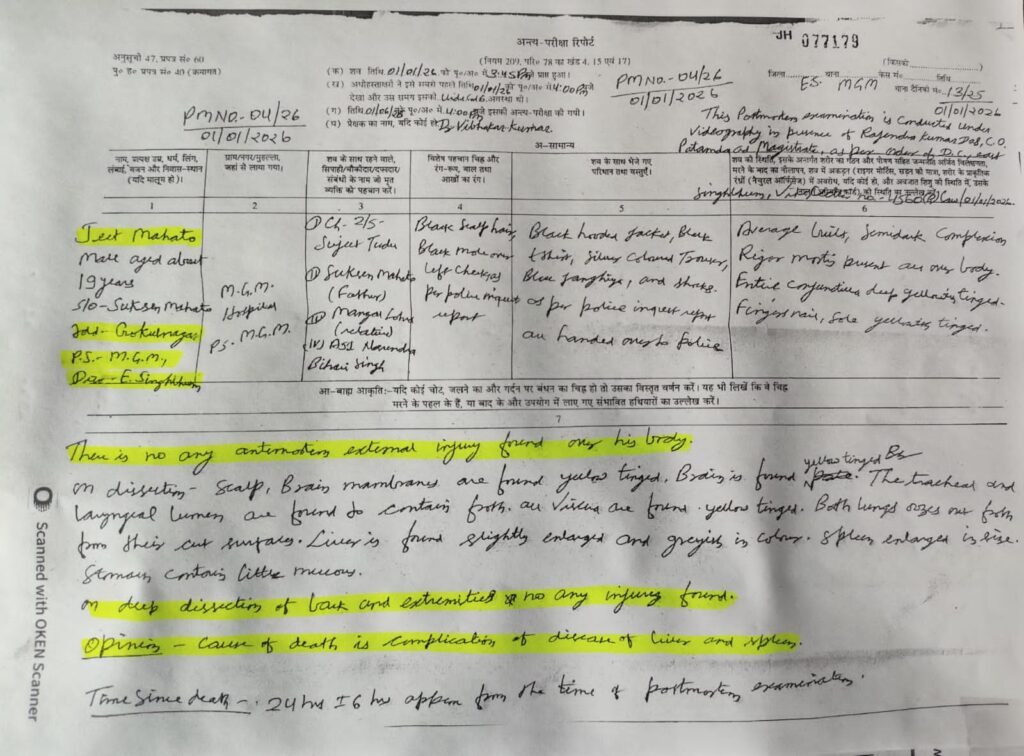 अन्त्य-परीक्षा रिपोर्ट
JH 077179
अनुसूची 47, प्रपत्र सं० 60
पु० ह० प्रपत्र सं० 40 (क्रमागत)
(नियम 209, परि० 78 का खंड 4, 15 एवं 17)
(क) शव तिथि 01/01/26 को पू०/अ० में 3:45 Pm प्राप्त हुआ।
(ख) अधोहस्ताक्षरी ने इसे सबसे पहले तिथि 01/01/26 पू०/अ० में 4:00 Pm बजे
देखा और उस समय इसकी अवस्था थी।
(ग) तिथि 4:00 Pm बजे इसकी अन्त्य-परीक्षा की गयी।
(घ) प्रेक्षक का नाम, यदि कोई हो Dr Vibhakar Kumar
PM NO.- 04/26
01/01/2026
PM NO.- 04/26
01/01/2026
जिला ES थाना MGM केस सं० तिथि
थाना दैनिकी सं० 13/25
01/01/2026
This Postmortem examination is conducted under
Videography in presence of Rajendra Kumar Das, C.O.
Patamda ad Magistrate, as per order of D.C., east
Singhbhum, 01/01/2026.
अ-सामान्य
नाम, प्रत्यक्ष उम्र, धर्म, लिंग,
लंबाई, वजन और निवास-स्थान
(यदि मालूम हो)।
ग्राम/नगर/मुहल्ला,
जहां से लाया गया।
शव के साथ रहने वाले,
सिपाही/चौकीदार/दफादार/
संबंधी के नाम जो मृत
व्यक्ति को पहचान करें।
विशेष पहचान चिह्न और
रंग-रूप, बाल तथा
आंखों का रंग।
शव के साथ भेजे गए
परिधान तथा वस्तुएँ।
1 2 3 4 5 6
Jeet Mahato
Male aged about
19 years
S/o- Suksen Mahato
Add- Gokulnagar
P.S.- M.G.M.,
Dist- E. Singhbhum
M.G.M.
Hospital
P.S. M.G.M.
I) Ch- 2/5-
Surjeet Tudu
II) Suksen Mahato
(Father)
(relative)
IV) ASI Narendra
Bihari Singh
Black Scalp hair,
Black mole over
left cheek, as
per police inquest
report
Black hooded Jacket, Black
t shirt, Silver Coloured Trouser,
Blue Janghiya, and
as per police inquest report
all handed over to police
Average built, Semidark Complexion
Rigor mortis present all over body.
Entire Conjunctiva deep yellowish tinged.
Finger nail, Sole yellowish tinged.
आ-बाह्य आकृति:-यदि कोई चोट, जलने का और गर्दन पर बंधन का चिह्न हो तो उसका विस्तृत वर्णन करें। यह भी लिखें कि वे चिह्न
मरने के पहले के हैं, या बाद के और उपयोग में लाए गए संभावित हथियारों का उल्लेख करें।
7
There is no any antemortem external injury found over his body.
On dissection - Scalp, Brain mambranes are found yellow tinged. Brain is found yellow tinged. The tracheal and
Laryngeal lumen are found to contain froth. all Viscera are found yellow tinged. Both lungs oozes out froth
from their cut surfaces. Liver is found slightly enlarged and greyish in colour. Spleen enlarged in size.
Stomach contains little mucous.
On deep dissection of back and extremities no any injury found.
Opinion - Cause of death is complication of disease of liver and spleen.
Time Since death -. 24 hrs ± 6 hrs appxm from the time of postmortem examination.
Scanned with OKEN Scanner